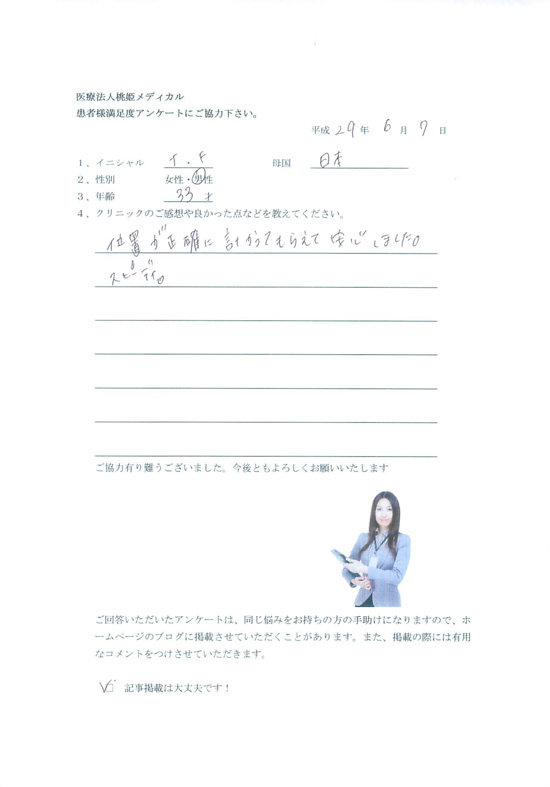 医療法人桃姫メディカル
患者様満足度アンケートにご協力下さい。
平成 29 年 6 月 7 日
1、イニシャル イ．F 母国 日本
2、性別 女性・男性
3、年齢 33 才
4、クリニックのご感想や良かった点などを教えてください。
位置が正確に計かってもらえて安心しました。
スピーディ。
ご協力有り難うございました。今後ともよろしくお願いいたします
ご回答いただいたアンケートは、同じ悩みをお持ちの方の手助けになりますので、ホ
ームページのブログに掲載させていただくことがあります。また、掲載の際には有用
なコメントをつけさせていただきます。
記事掲載は大丈夫です！